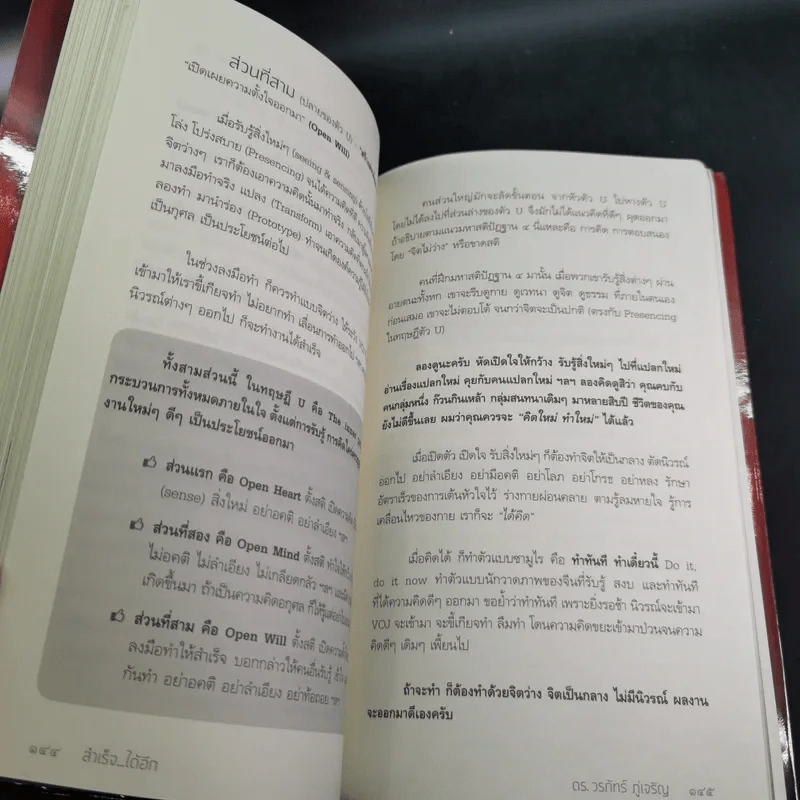 ส่วนที่สาม (ปลายของตัว U)
"เปิดเผยความตั้งใจออกมา" (Open Will)
เมื่อรับรู้สิ่งใหม่ๆ (seeing & sensing)
โล่ง โปร่งสบาย (Presencing) จนได้ความคิดที่ดี
จิตว่างๆ เราก็ต้องเอาความคิดนั้นมาทำจริง
มาลงมือทำจริง แปลง (Transform) เอาความคิด
ลองทำ มานำร่อง (Prototype) ทำจนเกิด
เป็นกุศล เป็นประโยชน์ต่อไป
ในช่วงลงมือทำ ก็ควรทำแบบจิตว่าง
เข้ามาให้เราขี้เกียจทำ ไม่อยากทำ เลื่อนการทำออกไป
นิวรณ์ต่างๆ ออกไป ก็จะทำงานได้สำเร็จ
ทั้งสามส่วนนี้ ในทฤษฎี U คือ The inner
กระบวนการทั้งหมดภายในใจ ตั้งแต่การรับรู้
งานใหม่ๆ ดีๆ เป็นประโยชน์ออกมา
ส่วนแรก คือ Open Heart ตั้งสติ เปิดความ
(sense) สิ่งใหม่ อย่าอคติ อย่าลำเอียง ฯลฯ
ส่วนที่สอง คือ Open Mind ตั้งสติ ทำใจให้
ไม่อคติ ไม่ลำเอียง ไม่เกลียดกลัว ฯลฯ
เกิดขึ้นมา ถ้าเป็นความคิดอกุศล ก็ให้
ส่วนที่สาม คือ Open Will ตั้งสติ เปิดความ
ลงมือทำให้สำเร็จ บอกกล่าวให้คนอื่นรับรู้
กันทำ อย่าอคติ อย่าลำเอียง อย่าท้อถอย ฯลฯ
๑๔๔ สำเร็จ...ได้อีก
คนส่วนใหญ่มักจะลัดขั้นตอน จากหัวตัว U ไปหางตัว U
โดยไม่ได้ลงไปที่ส่วนล่างของตัว U จึงมักไม่ได้แนวคิดที่ดีๆ ผุดออกมา
ถ้าอธิบายตามแนวมหาสติปัฏฐาน ๔ นี่แหละคือ การคิด การตอบสนอง
โดย "จิตไม่ว่าง" หรือขาดสติ
คนที่ฝึกมหาสติปัฏฐาน ๔ มานั้น เมื่อพวกเขารับรู้สิ่งต่างๆ ผ่าน
อายตนะทั้งหก เขาจะรีบดูกาย ดูเวทนา ดูจิต ดูธรรม ที่ภายในตนเอง
ก่อนเสมอ เขาจะไม่ตอบโต้ จนกว่าจิตจะเป็นปกติ (ตรงกับ Presencing
ในทฤษฎีตัว U)
ลองดูนะครับ หัดเปิดใจให้กว้าง รับรู้สิ่งใหม่ๆ ไปที่แปลกใหม่
อ่านเรื่องแปลกใหม่ คุยกับคนแปลกใหม่ ฯลฯ ลองคิดดูสิว่า คุณคบกับ
คนกลุ่มหนึ่ง ก๊วนกินเหล้า กลุ่มสนทนาเดิมๆ มาหลายสิบปี ชีวิตของคุณ
ยังไม่ดีขึ้นเลย ผมว่าคุณควรจะ "คิดใหม่ ทำใหม่" ได้แล้ว
เมื่อเปิดตัว เปิดใจ รับสิ่งใหม่ๆ ก็ต้องทำจิตให้เป็นกลาง ตัดนิวรณ์
ออกไป อย่าลำเอียง อย่ามีอคติ อย่าโลภ อย่าโกรธ อย่าหลง รักษา
อัตราเร็วของการเต้นหัวใจไว้ ร่างกายผ่อนคลาย ตามรู้ลมหายใจ รู้การ
เคลื่อนไหวของกาย เราก็จะ "ได้คิด"
เมื่อคิดได้ ก็ทำตัวแบบซามูไร คือ ทำทันที ทำเดี๋ยวนี้ Do it,
do it now ทำตัวแบบนักวาดภาพของจีนที่รับรู้ สงบ และทำทันที
ที่ได้ความคิดดีๆ ออกมา ขอย้ำว่าทำทันที เพราะยิ่งรอช้า นิวรณ์จะเข้ามา
VOJ จะเข้ามา จะขี้เกียจทำ ลืมทำ โดนความคิดขยะเข้ามาป่วนจนความ
คิดดีๆ เดิมๆ เพี้ยนไป
ถ้าจะทำ ก็ต้องทำด้วยจิตว่าง จิตเป็นกลาง ไม่มีนิวรณ์ ผลงาน
จะออกมาดีเองครับ
ดร.วรภัทร์ ภู่เจริญ ๑๔๕